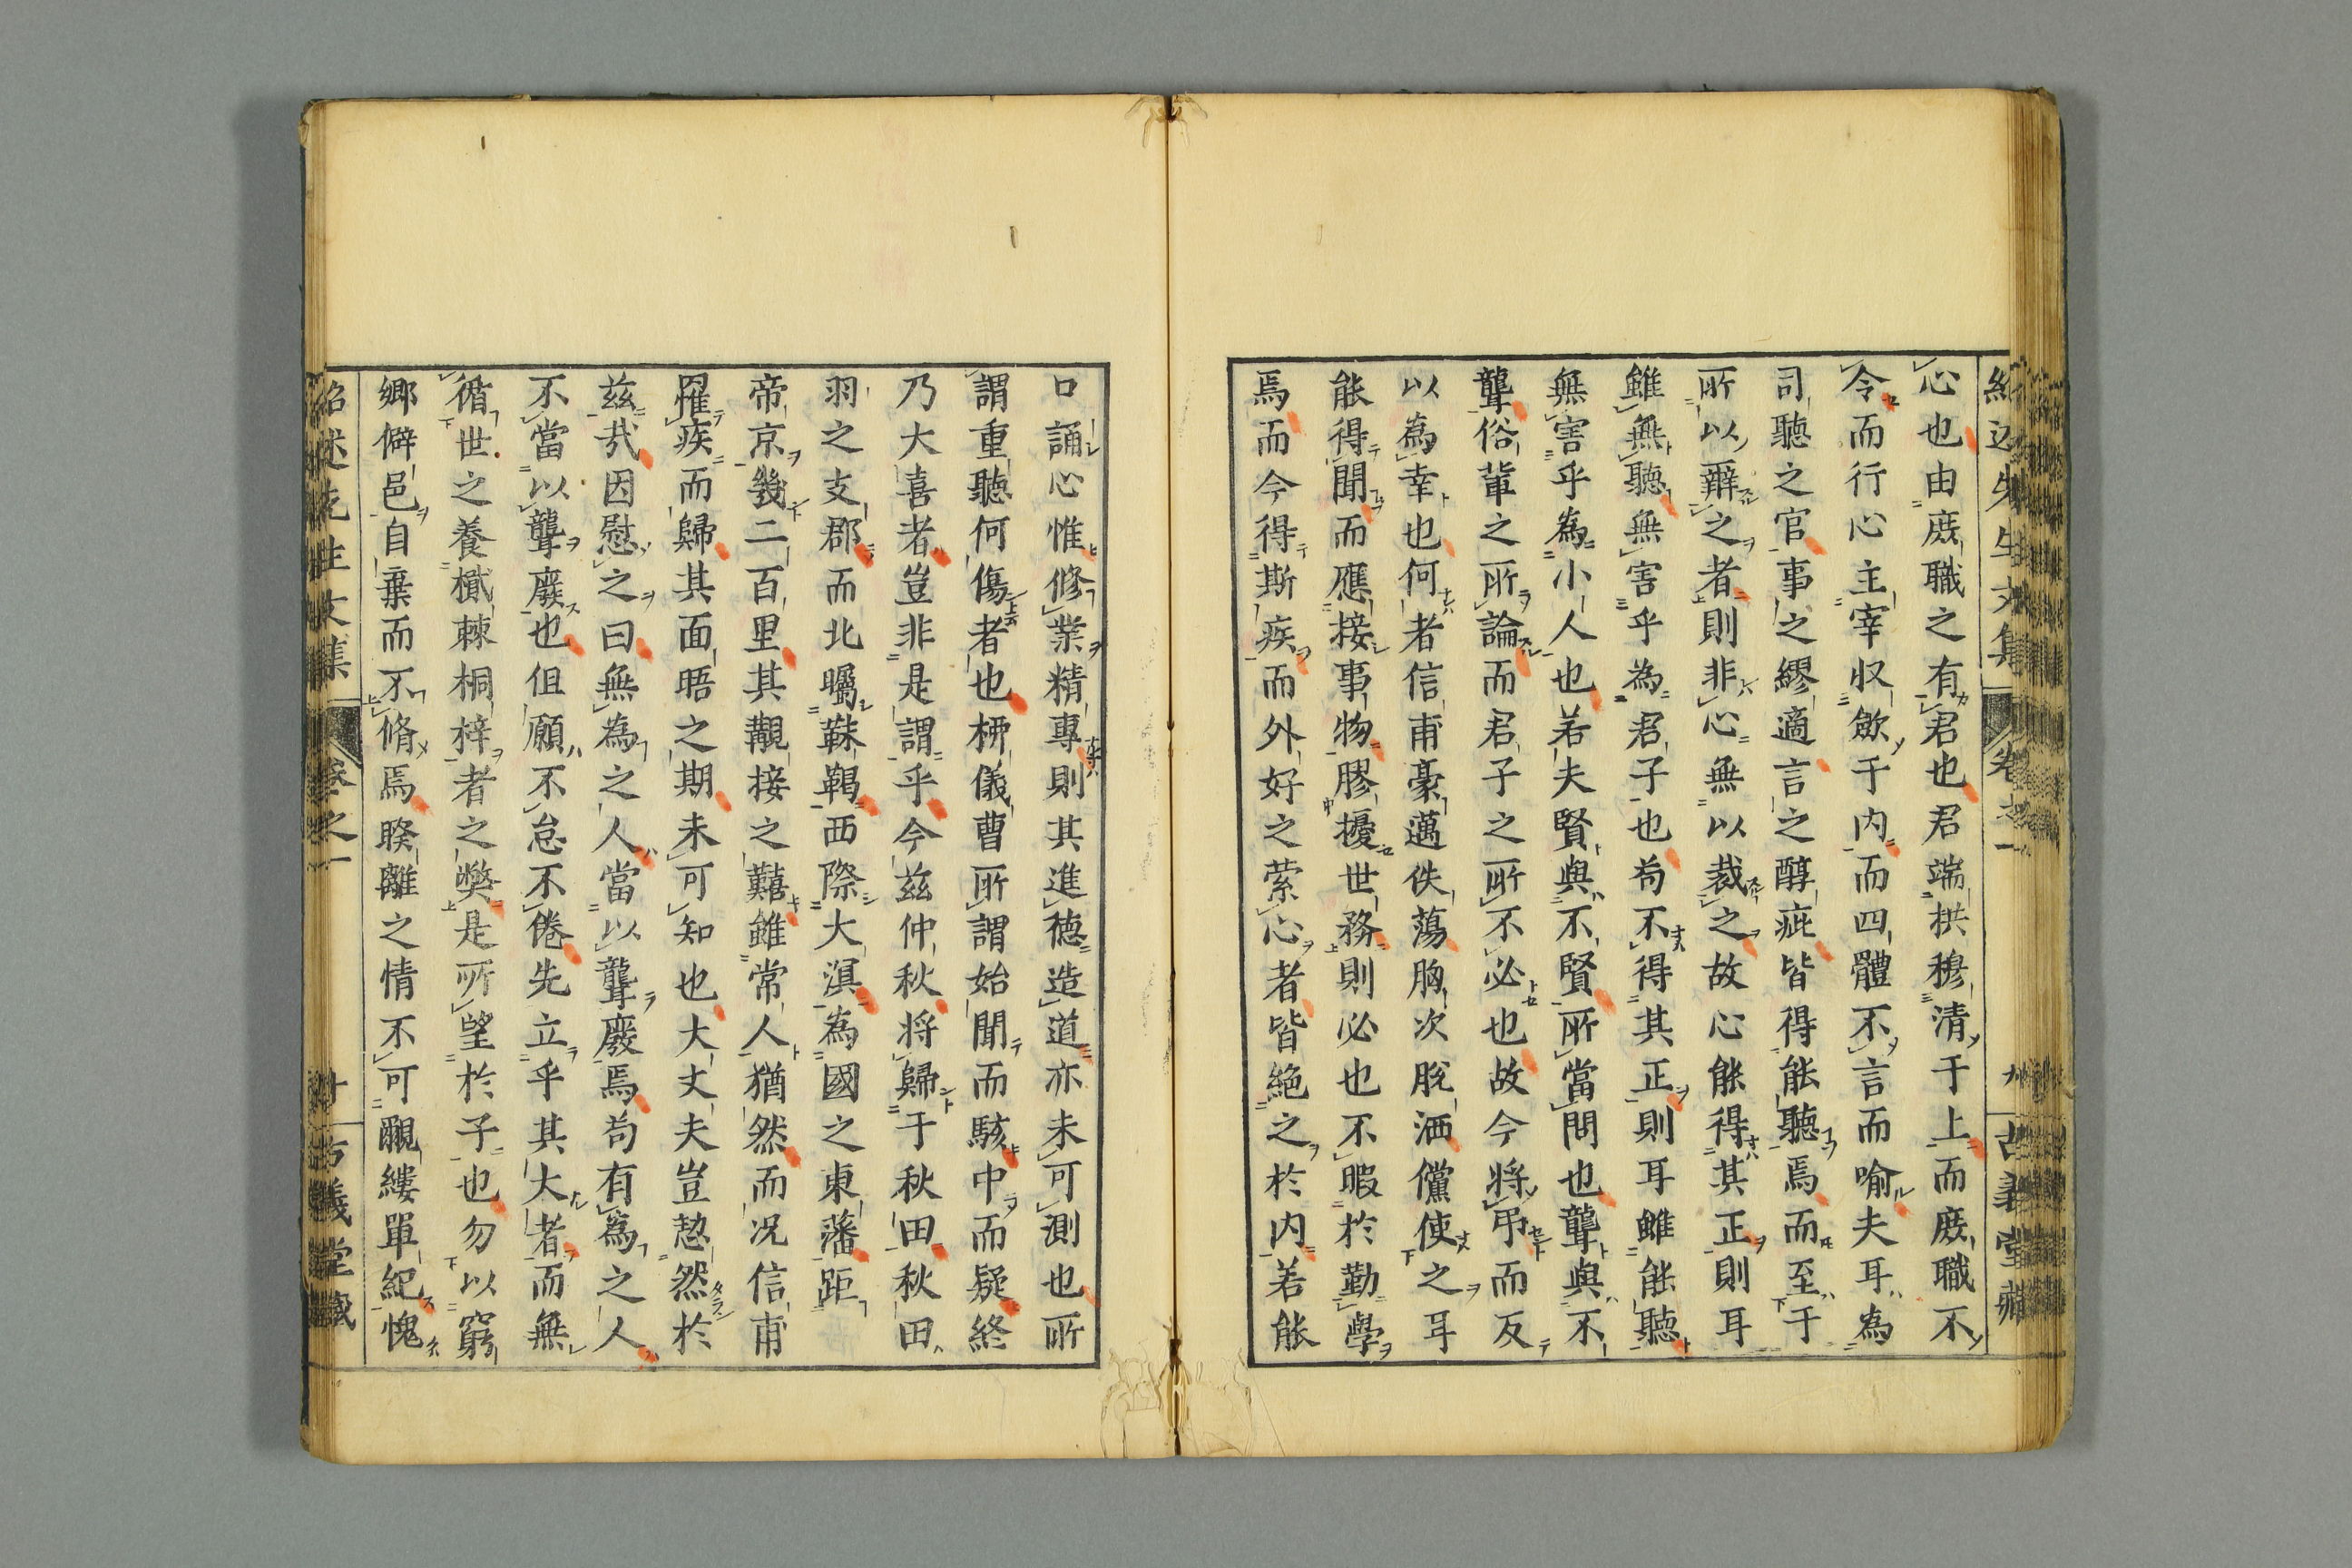 紹述先生文集 卷之一 九 古義堂藏
心也由庶職之有君也君端拱穆清于上而庶職不
令而行心主宰収斂于内而四體不言而喻夫耳為
司聽之官事之繆適言之醇疵皆得能聽焉而至于
所以辭之者則非心無以裁之故心能得其正則耳
雖無聽無害乎為君子也苟不得其正則耳雖能聽
無害乎為小人也若夫賢與不賢所當問也聾與不
聾俗輩之所論而君子之所不必也故今將弔而反
以為幸也何者信甫豪邁佚蕩胸次脫洒儻使之耳
能得聞而應接事物膠擾世務則必也不暇於勤學
焉而今得斯疾而外好之縈心者皆絶之於内若能
口誦心惟修業精專則其進德造道亦未可測也所
謂重聽何傷者也柳儀曹所謂始聞而駭中而疑終
乃大喜者豈非是謂乎今茲仲秋将歸于秋田秋田
羽之支郡而北矚靺鞨西際大溟為國之東藩距
帝京幾二百里其覯接之囏雖常人猶然而况信甫
罹疾而歸其面晤之期未可知也大丈夫豈恝然於
茲㢤因慰之曰無為之人當以聾廢焉苟有為之人
不當以聾廢也但願不怠不倦先立乎其大者而無
循世之養樲棘桐梓者之獘是所望於子也勿以窮
鄉僻邑自棄而不脩焉睽離之情不可覼縷單紀愧
紹述先生文集 卷之一 十 古義堂藏